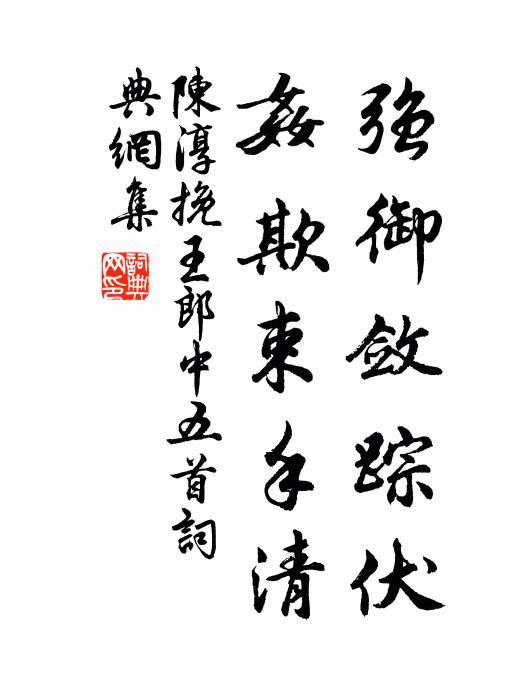 强御敛踪伏
姦欺束手清
陳淳挽王郎中五首詞
典網集
詞典网印